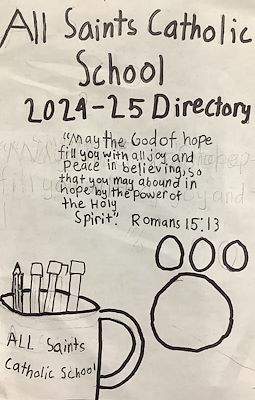 All Saints Catholic
School
2024-25 Directory
"May the God of hope
fill you with all joy and
Peace in believing, so
that you may abound in
hope by the power of
the Holy
Spirit". Romans 15:13
ALL Saints
Catholic School